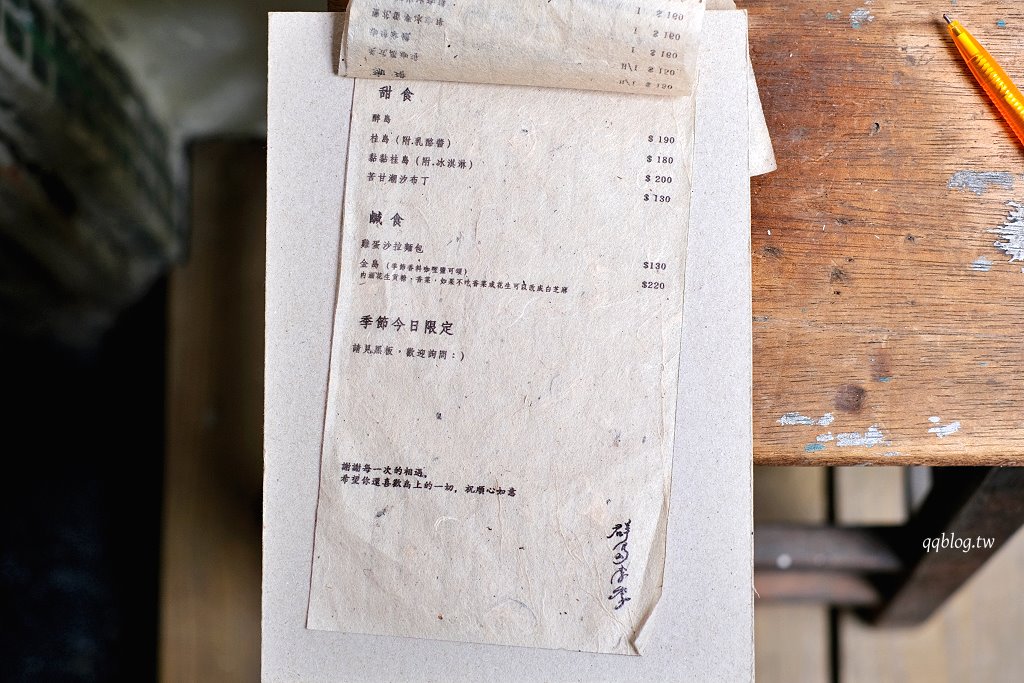 1 $ 160
1 $ 160
1 $ 160
H/I $ 120
H/I $ 120
甜食
醉島
桂島（附.乳酪醬） $ 190
黏黏桂島（附.冰淇淋） $ 180
苦甘潮汐布丁 $ 200
$ 130
鹹食
雞蛋沙拉麵包
金島（季節香料咖哩醬可頌） $130
內涵花生貢糖、香菜，如果不吃香菜或花生可以改成白芝麻 $220
季節今日限定
請見黑板，歡迎詢問：）
謝謝每一次的相遇，
希望你還喜歡島上的一切，祝順心如意
群島
qqblog.tw